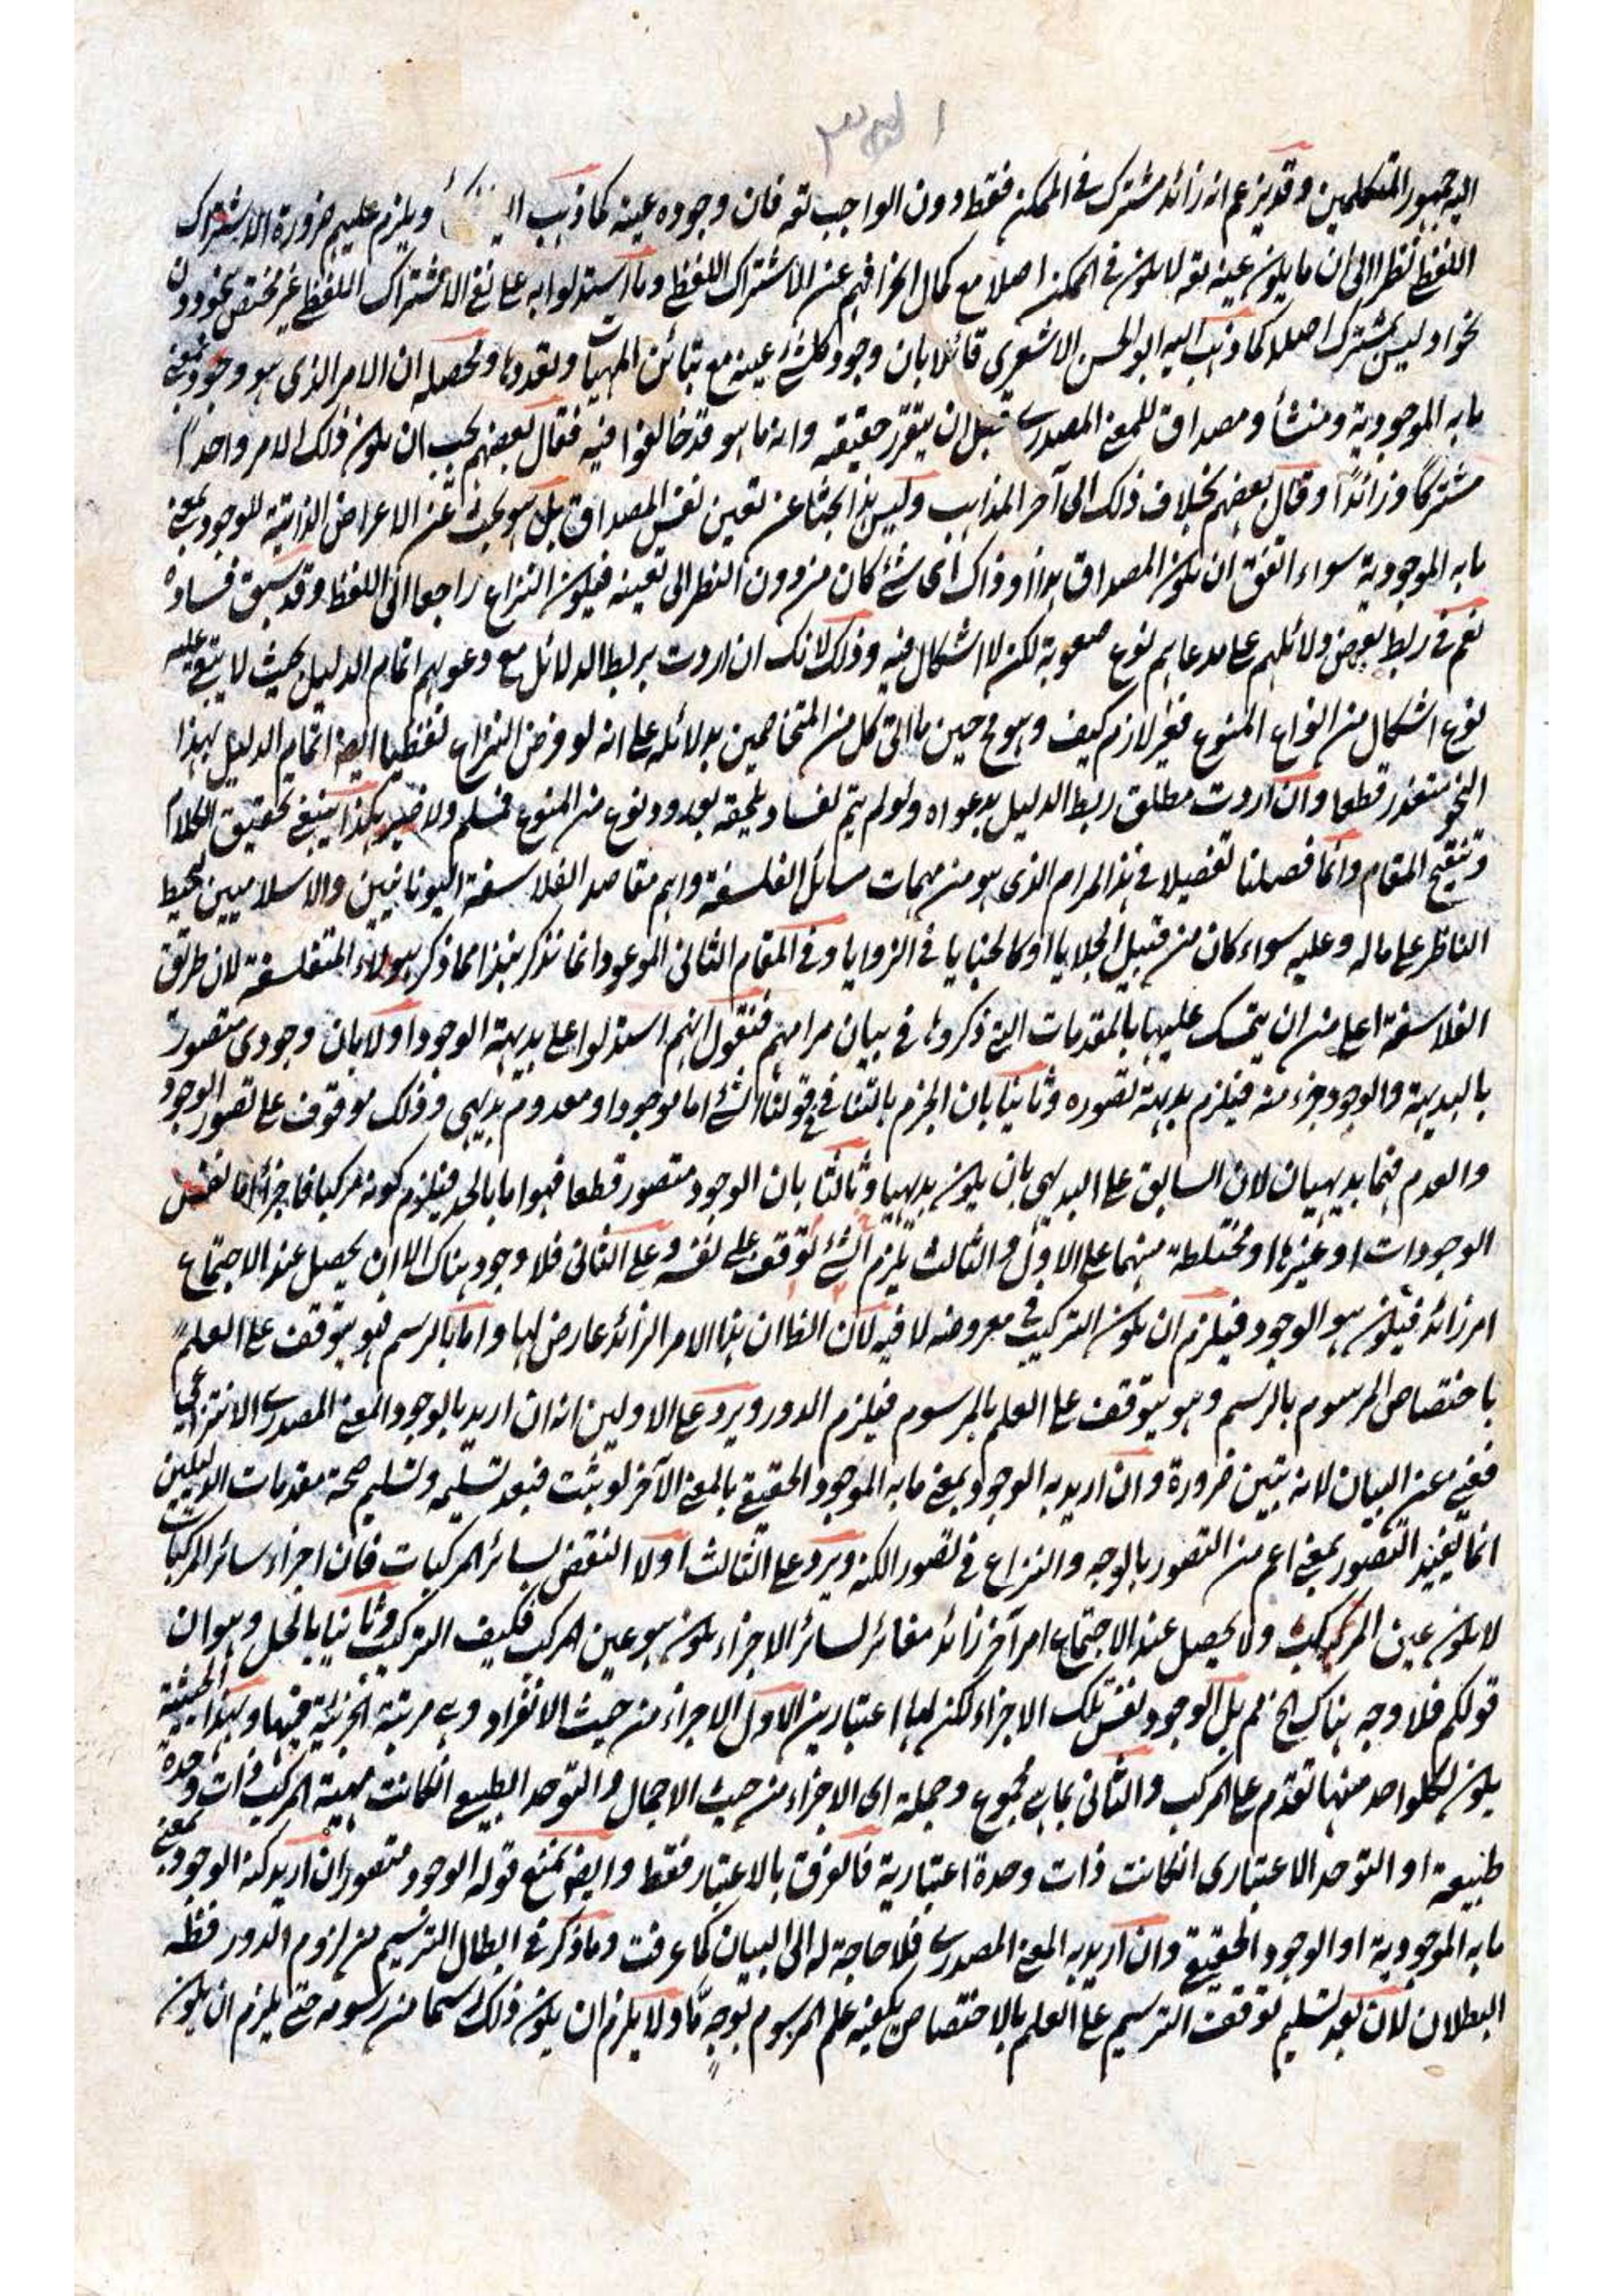 اليه جمهور المتكلمين وقد يزعم انه زائد مشترك في الممكن فقط دون الواجب تعه فان وجوده عينه كما ذهب ويلزم عليهم ضرورة الاشتراك
اللفظي نظرا الى ان ما يكون عينه تعه لا يكون في الممكن اصلا مع كمال انحرافهم عن الاشتراك اللفظي وما استدلوا به على نفي الاشتراك اللفظي غير مختص بنحو دون
نحو او ليس بمشترك اصلا كما ذهب اليه ابو الحسن الاشعري قائلا بان وجود كل شئ عينه مع تبائن المهيات وتعددها ومحصله ان الامر الذي هو وجود بمعنى
ما به الموجودية ومنشأ ومصداق للمعنى المصدري قبل ان يتقرر حقيقته وانه ما هو قد خالفوا فيه فقال بعضهم يجب ان يكون ذلك الامر واحدا
مشتركا وزائدا وقال بعضهم بخلاف ذلك الى آخر المذاهب وليس هذا بحثا عن تعين نفس المصداق بل هو بحث عن الاعراض الذاتية للوجود بمعنى
ما به الموجودية سواء اتفق ان يكون المصداق هذا او ذاك اى شئ كان من دون النظر الى تعينه فيكون النزاع راجعا الى اللفظ وقد سبق فساده
نعم في ربط بعض دلائلهم على مدعاهم نوع صعوبة لكن لا اشكال فيه وذلك لانك ان اردت بربط الدلائل مع دعوىهم اتمام الدليل بحيث لا يبقى عليه
نوع اشكال من انواع المنوع فغير لازم كيف وهو ح حين ما اتى كل من المتخاصمين بدلائله على انه لو فرض النزاع لفظيا ايضا اتمام الدليل بهذا
النحو متعذر قطعا وان اردت مطلق ربط الدليل بدعواه ولو لم يتم لفساد يلحقه بورود نوع من المنوع فمسلم ولا ضير هكذا ينبغي تحقيق الكلام
وتنقيح المقام وانما فصلنا تفصيلا في هذا المرام الذي هو من مهمات مسائل الفلسفة واهم مقاصد الفلاسفة اليونانيين والاسلاميين ليحيط
الناظر على ما له وعليه سواء كان من قبيل الجلايا او كالخبايا في الزوايا وفي المقام الثاني الموعود انما نذكر نبذا مما ذكر هؤلاء المتفلسفة لان طريق
الفلاسفة اعلى من ان يتمسك عليها بالمقدمات التي ذكروها في بيان مرامهم فنقول انهم استدلوا على بديهة الوجود اولا بان وجودي متصور
بالبديهة والوجود جزء منه فيلزم بديهة تصوره وثانيا بان الجزم بالتنافي في قولنا الشئ اما موجود او معدوم بديهي وذلك موقوف على تصور الوجود
والعدم فهما بديهيان لان السابق على البديهي بان يكون بديهيا وثالثا بان الوجود متصور قطعا فهو اما بالحد فيلزم كونه مركبا فاجزائه اما نفس
الوجودات او غيرها او مختلطة منهما على الاول والثالث يلزم توقف الشئ على نفسه وعلى الثاني فلا وجود هناك الا ان يحصل عند الاجتماع
امر زائد فيكون هو الوجود فيلزم ان يكون التركيب في معروضه لا فيه لان الظ ان هذا الامر الزائد عارض لها واما بالرسم فهو يتوقف على العلم
باختصاص المرسوم بالرسم وهو يتوقف على العلم بالمرسوم فيلزم الدور ويرد على الاولين انه ان اريد بالوجود المعنى المصدري الانتزاعي
فغني عن البيان لانه بين ضرورة وان اريد به الوجود بمعنى ما به الموجود الحقيقي بالمعنى الآخر لو ثبت فبعد تسليمه وتسليم صحة مقدمات الدليلين
انما يفيد التصور بمعنى اعم من التصور بالوجه والنزاع في تصور الكنه ويرد على الثالث اولا النقض بسائر المركبات فان اجزاء سائر المركبات
لا يكون عين المركب ولا يحصل عند الاجتماع امر آخر زائد مغائر لسائر الاجزاء يكون هو عين المركب فكيف التركيب وثانيا بالحل وهو ان
قولكم فلا وجه هناك الخ مم بل الوجود نفس تلك الاجزاء لكن لها اعتبارين الاول الاجزاء من حيث الانفراد وهي مرتبة الجزئية فيها وبهذا الحيثية
يكون لكل واحد منها تقدم على المركب والثاني بما هي مجموع وجملة اى الاجزاء من حيث الاجمال والتوحد الطبيعي انكانت مهية المركب ذات وحدة
طبيعية او التوحد الاعتباري انكانت ذات وحدة اعتبارية فالفرق بالاعتبار فقط وايضا نمنع قوله الوجود متصور ان اريد كنه الوجود بمعنى
ما به الموجودية او الوجود الحقيقي وان اريد به المعنى المصدري فلا حاجة له الى البيان كما عرفت وما ذكر في ابطال الترسيم من لزوم الدور فظه
البطلان لان بعد تسليم توقف الترسيم على العلم بالاختصاص يكفيه علم المرسوم بوجه ما ولا يلزم ان يكون ذلك رسما من رسومه حتى يلزم ان يكون